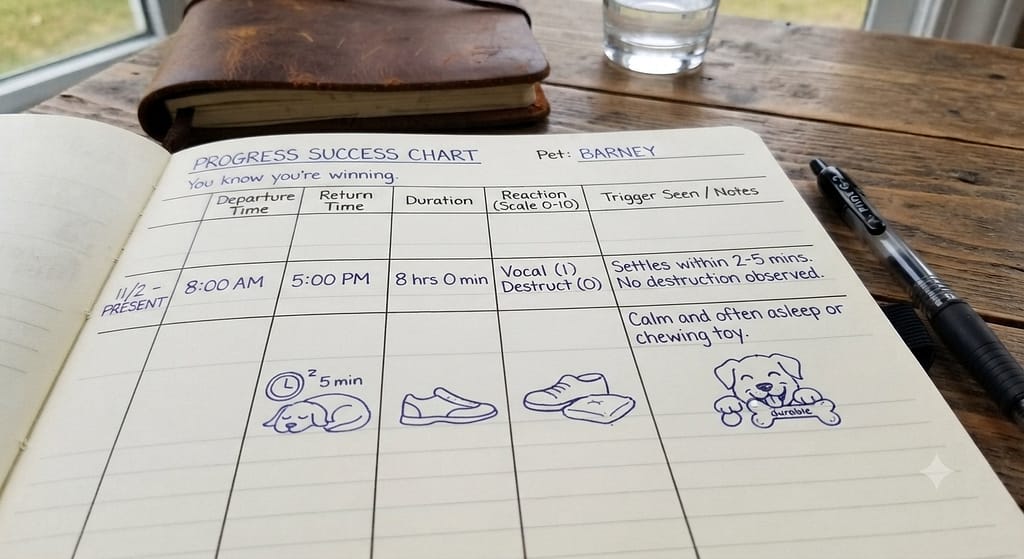 PROGRESS SUCCESS CHART Pet: BARNEY
You know you're winning.
Departure Time
Return Time
Duration
Reaction (Scale 0-10)
Trigger Seen / Notes
11/2 - PRESENT
8:00 AM
5:00 PM
8 hrs 0 min
Vocal (1)
Destruct (0)
Settles within 2-5 mins.
No destruction observed.
Calm and often asleep or
chewing toy.
z 5 min
durable